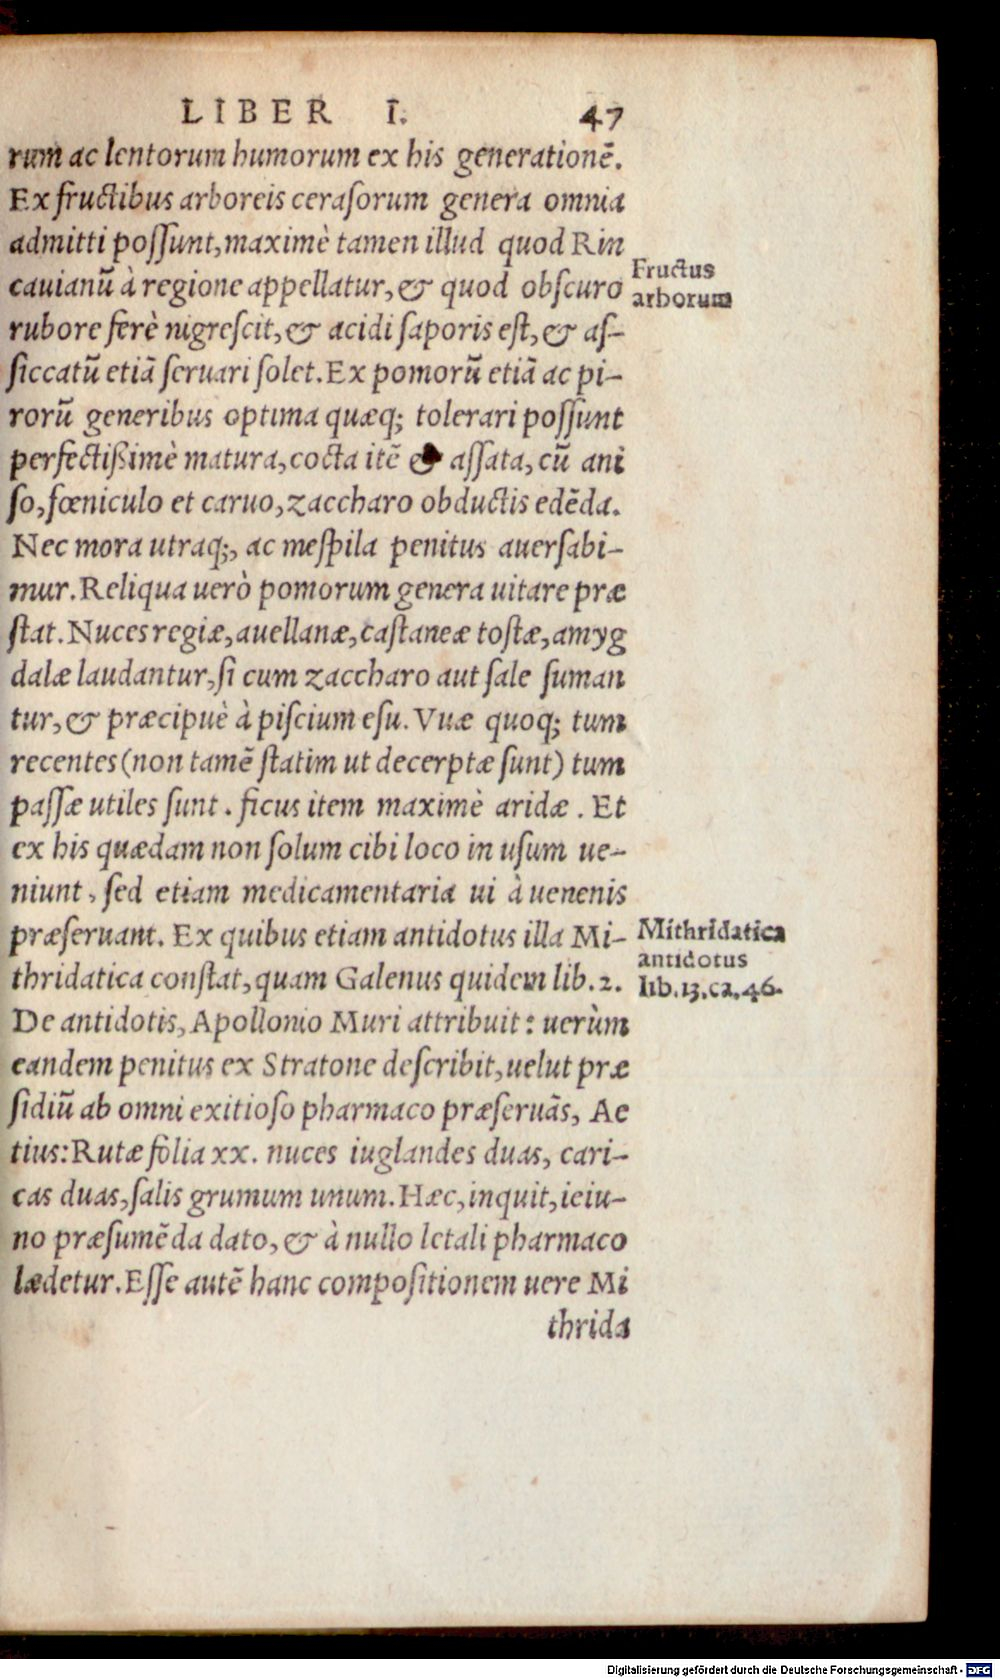 LIBER I. 47
rum ac lentorum humorum ex his generationē.
Ex fructibus arboreis ceraſorum genera omnia
admitti poſſunt, maximè tamen illud quod Rin
cauianū à regione appellatur, & quod obſcuro
Fructus
arborum
rubore ferè nigreſcit, & acidi ſaporis eſt, & aſ-
ſiccatū etiā ſeruari ſolet. Ex pomorū etiā ac pi-
rorū generibus optima quæq; tolerari poſſunt
perfectißimè matura, cocta itē & aſſata, cū ani
ſo, fœniculo et caruo, zaccharo obductis edēda.
Nec mora utraq;, ac meſpila penitus auerſabi-
mur. Reliqua uerò pomorum genera uitare præ
ſtat. Nuces regiæ, auellanæ, caſtaneæ toſtæ, amyg
dalæ laudantur, ſi cum zaccharo aut ſale ſuman
tur, & præcipuè à piſcium eſu. Vuæ quoq; tum
recentes (non tamē ſtatim ut decerptæ ſunt) tum
paſſæ utiles ſunt. ficus item maximè aridæ. Et
ex his quædam non ſolum cibi loco in uſum ue-
niunt, ſed etiam medicamentaria ui à uenenis
præſeruant. Ex quibus etiam antidotus illa Mi-
thridatica conſtat, quam Galenus quidem lib. 2.
Mithridatica
antidotus
lib. 13. ca. 46.
De antidotis, Apollonio Muri attribuit: uerùm
eandem penitus ex Stratone deſcribit, uelut præ
ſidiū ab omni exitioſo pharmaco præſeruās, Ae
tius: Rutæ folia xx. nuces iuglandes duas, cari-
cas duas, ſalis grumum unum. Hæc, inquit, ieiu-
no præſumēda dato, & à nullo letali pharmaco
lædetur. Eſſe autē hanc compoſitionem uere Mi
thrida
Digitalisierung gefördert durch die Deutsche Forschungsgemeinschaft - DFG